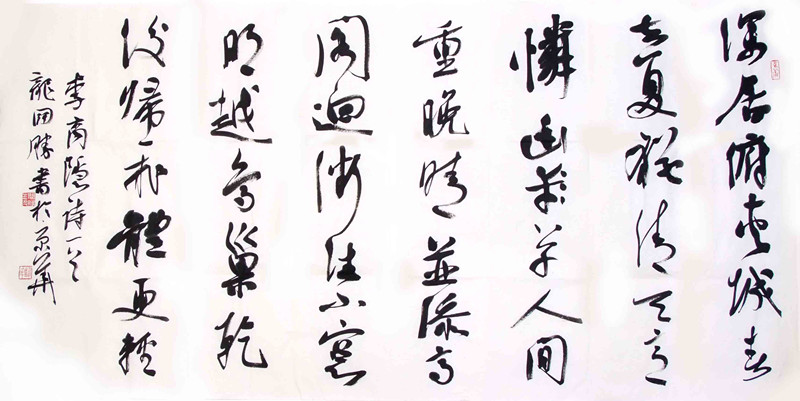 深居俯夾城春
去夏猶清天意
憐幽草人間
重晚晴並添高
閣迥微注小窗
明越鳥巢乾
後歸飛體更輕
李商隱詩一首
龍勝書於京華